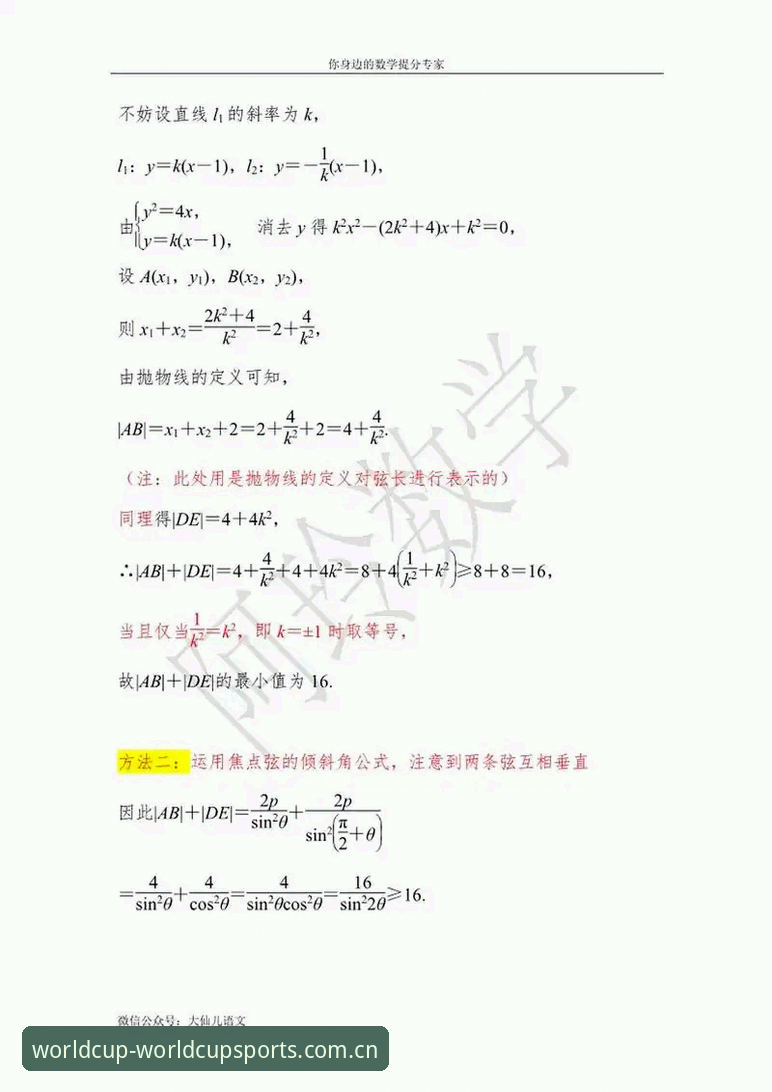 你身边的数学提分专家
不妨设直线 l₁ 的斜率为 k，
l₁：y=k(x−1)，l₂：y=−1/k(x−1)，
由{y²=4x， y=k(x−1)， 消去 y 得 k²x²−(2k²+4)x+k²=0，
设 A(x₁，y₁)，B(x₂，y₂)，
则 x₁+x₂=(2k²+4)/k²=2+4/k²，
由抛物线的定义可知，
|AB|=x₁+x₂+2=2+4/k²+2=4+4/k².
（注：此处用是抛物线的定义对弦长进行表示的）
同理得|DE|=4+4k²，
∴|AB|+|DE|=4+4/k²+4+4k²=8+4(1/k²+k²)≥8+8=16，
当且仅当1/k²=k²，即 k=±1 时取等号，
故|AB|+|DE|的最小值为 16.
方法二：运用焦点弦的倾斜角公式，注意到两条弦互相垂直
因此|AB|+|DE|=2p/sin²θ+2p/sin²(π/2+θ)
=4/sin²θ+4/cos²θ=4/sin²θcos²θ=16/sin²2θ≥16.
阿玲数学
微信公众号：大仙儿语文
worldcup-worldcupsports.com.cn